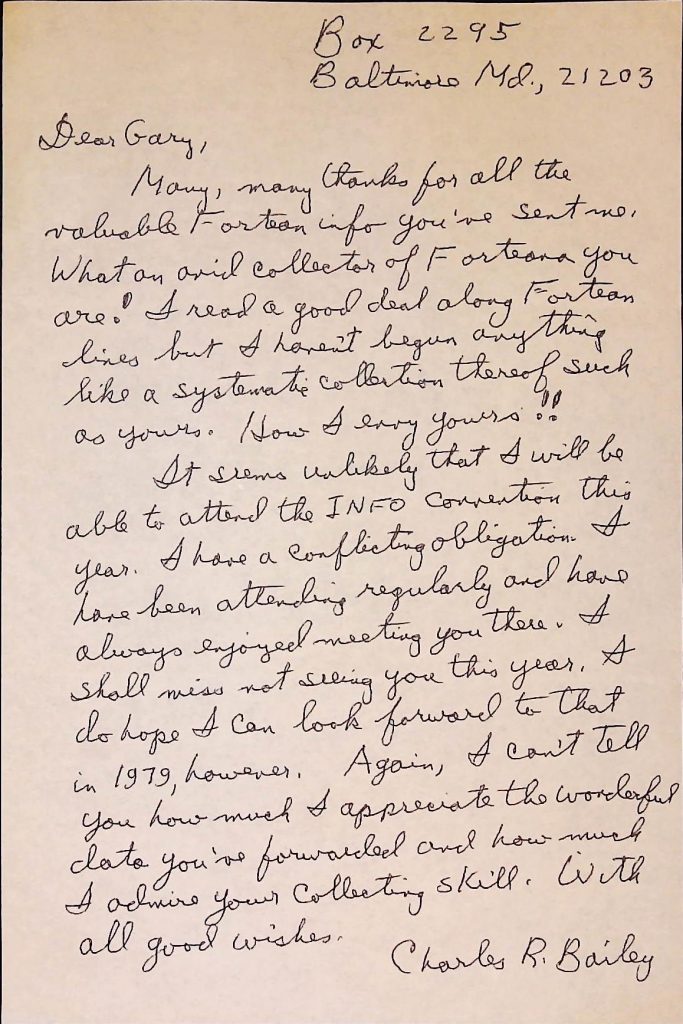 Box 2295
Baltimore Md., 21203
Dear Gary,
Many, many thanks for all the
valuable Fortean info you've sent me.
What an avid collector of Forteana you
are! I read a good deal along Fortean
lines but I haven't begun anything
like a systematic collection thereof such
as yours. How I envy yours!!
It seems unlikely that I will be
able to attend the INFO Convention this
year. I have a conflicting obligation. I
have been attending regularly and have
always enjoyed meeting you there. I
shall miss not seeing you this year. I
do hope I can look forward to that
in 1979, however. Again, I can't tell
you how much I appreciate the wonderful
data you've forwarded and how much
I admire your collecting skill. With
all good wishes.
Charles R. Bailey